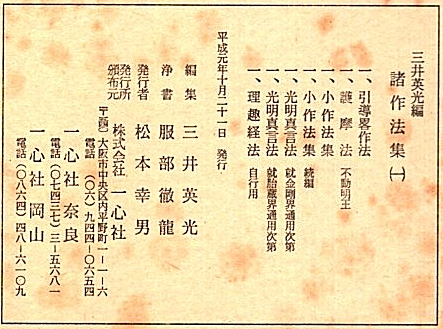 三井英光編
諸作法集㈠
一、引導畧作法
一、護摩法 不動明王
一、小作法集
一、小作法集 続編
一、光明真言法 就金剛界通用次第
一、光明真言法 就胎蔵界通用次第
一、理趣経法 自行用
平成元年十月二十一日 発行
編集 三井英光
浄書 服部徹龍
発行者 松本幸男
発行所
頒布元 株式会社 一心社
大阪市中央区内平野町一-一-六
電話 (〇六) 九四四-〇六五四
一心社 奈良
電話 (〇七四三七) 三-五六八一
一心社 岡山
電話 (〇八六四) 四八-六一〇九